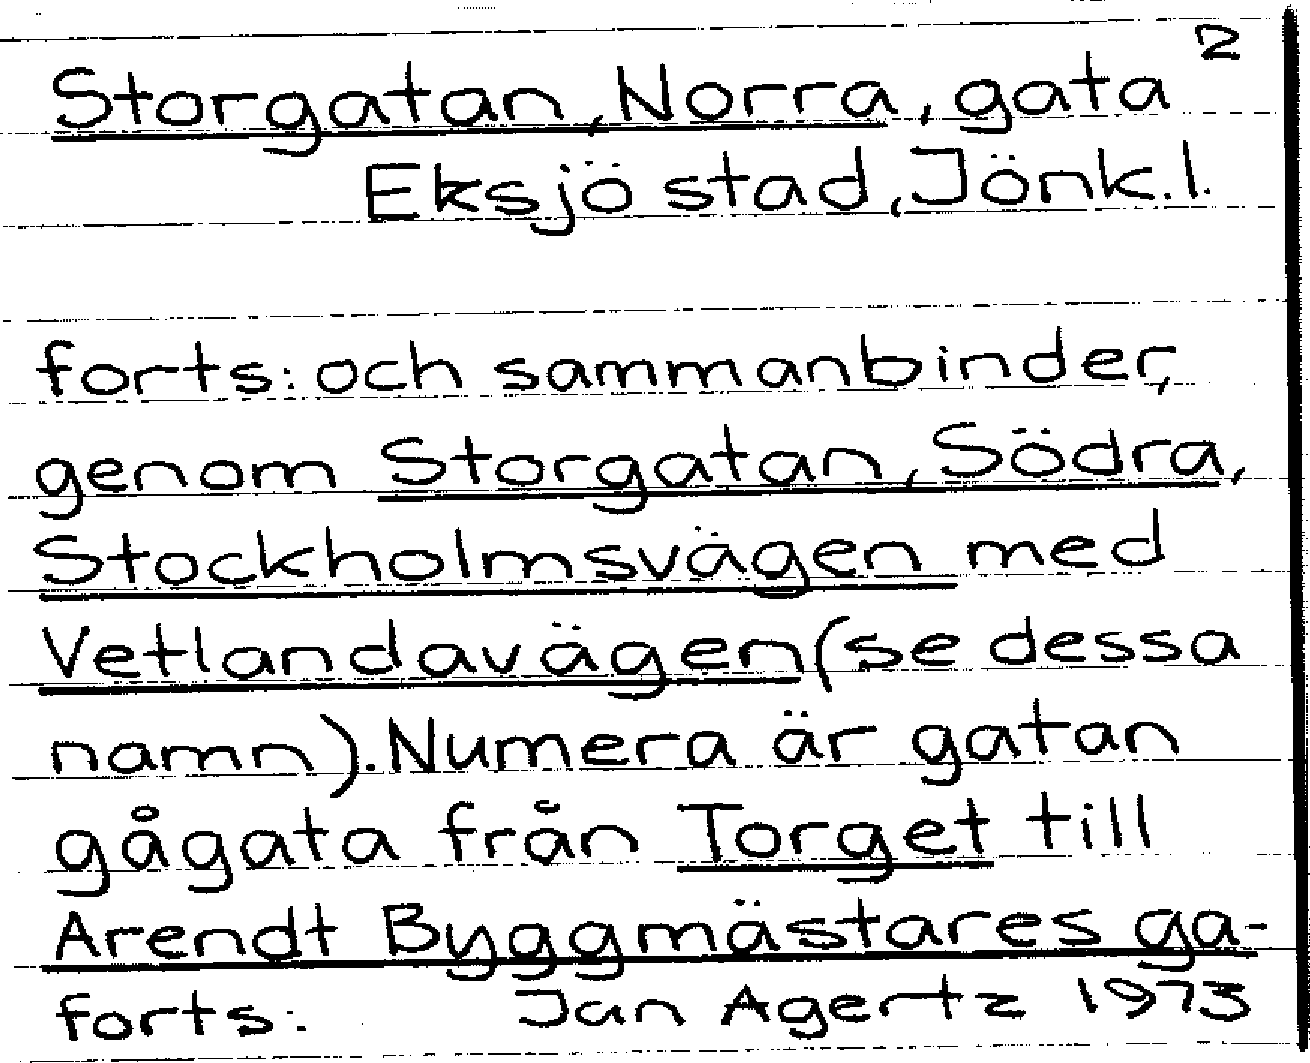 2
Storgatan, Norra, gata
Eksjö stad, Jönk.l.
forts: och sammanbinder,
genom Storgatan, Södra,
Stockholmsvägen med
Vetlandavägen (se dessa
namn). Numera är gatan
gågata från Torget till
Arendt Byggmästares ga-
forts. Jan Agertz 1973